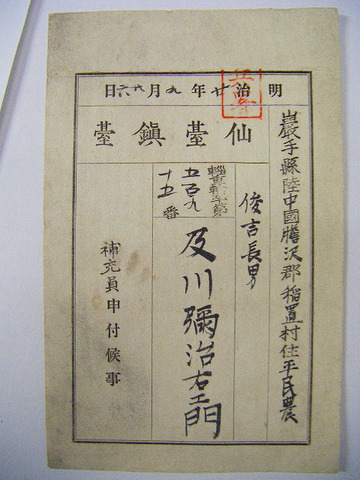 明治廿年九月廿六日
巖手縣陸中國膽沢郡稲置村住平民農
俊吉長男
仙臺鎮臺
輜重輸卒第
五百九
十五番
及川彌治右エ門
補充員申付候事